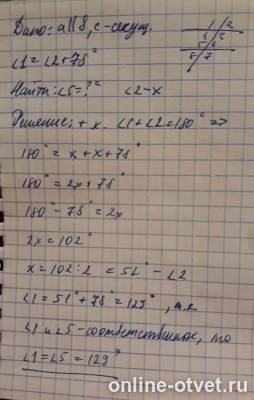 Дано: a||b, c-секущ.
1/2
4/3
5/6
8/7
∠1=∠2+78°
Найти: ∠5=? ∠2-x
Решение: т.к. ∠1+∠2=180° =>
180°=x+x+78°
180°=2x+78°
180°-78°=2x
2x=102°
x=102:2=51°-∠2
∠1=51°+78°=129°, т.к
∠1 и ∠5-соответственные, то
∠1=∠5=129°
online-otvet.ru